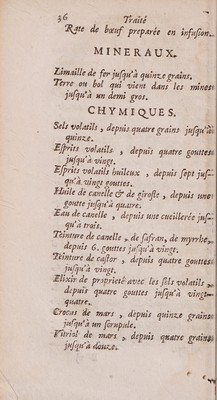 36 Traité
Rate de bœuf preparée en infusion.
MINERAUX.
Limaille de fer jusqu'à quinze grains.
Terre ou bol qui vient dans les mines
jusqu'à un demi gros.
CHYMIQUES.
Sels volatils, depuis quatre grains jusqu'à
quinze.
Esprits volatils, depuis quatre gouttes
jusqu'à vingt.
Esprits volatils huileux, depuis sept jus-
qu'à vingt gouttes.
Huile de canelle & de girofle, depuis une
goutte jusqu'à quatre.
Eau de canelle, depuis une cueillerée jus-
qu'à trois.
Teinture de canelle, de safran, de myrrhe,
depuis 6. gouttes jusqu'à vingt.
Teinture de castor, depuis quatre gouttes
jusqu'à vingt.
Elixir de proprieté avec les sels volatils,
depuis quatre gouttes jusqu'à vingt-
quatre.
Crocus de mars, depuis quinze grains
jusqu'à un scrupule.
Vitriol de mars, depuis quatre grains
jusqu'à douze.